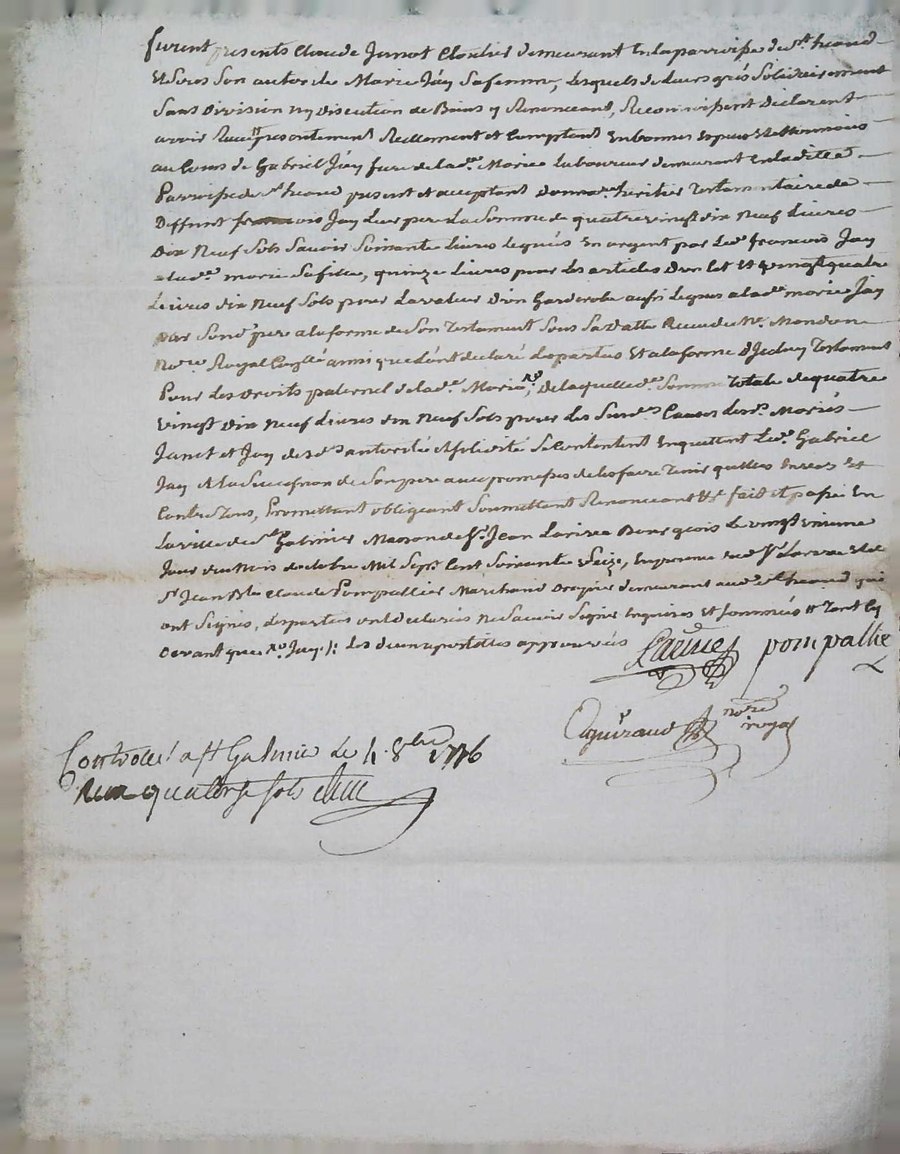 furent presents Claude Junot Closdier demeurant en la parroisse de st heand
et sous son autorité Marie Jay sa femme, lesquels de leurs grés solidairement
sans division ny discution de biens y renonceant, reconnoissent declarent
avoir reçu presentement reellement et comptant en bonnes especes et
au cours de Gabriel Jay frere de lad.e Marie laboureur demeurant en ladite
parroisse de st heand present et acceptant comme heritier testamentaire de
deffunt francois Jay leur pere la somme de quatre vingt dix neuf livres
dix neuf sols savoir soixante livres legués en argent par led. francois Jay
a lad.e marie sa fille, quinze livres pour les articles d'un lit et vingt quatre
livres dix neuf sols pour la valeur d'un garderobe aussi legués a lad.e marie Jay
par sond. pere a la forme de son testament sous sa datte recu de Me. Mondon
no.re royal ainsi que l'ont declaré les parties et a la forme d'iceluy testament
pour les droits paternel de lad.e Marie Jay, de laquelle d.e somme totale de quatre
vingt dix neuf livres dix neuf sols pour les susd.es causes lesd. mariés
Junot et Jay de sd.e autorité et solidité se contentent en quittent led. Gabriel
Jay et la succession de son pere avec promesses de les faire tenir quittes envers et
contre tous, promettant obligeant soumettant renonceant &c fait et passé en
la ville de st Galmier maison de sr. Jean Bourgeois le vingt
jour du mois d'octobre mil sept cent soixante et seize, en presence dud. sr et de
sr Jean Bte Claude Pompallier marchand demeurant aud. st heand qui
ont signés, les parties ont declarés ne savoir signer enquises et sommées
devant que no. Jay /: les deux apostilles approuvées
pompallie
no.re royal
Controllé a st Galmier le 4. 8bre 1776
Recu quatorze sols